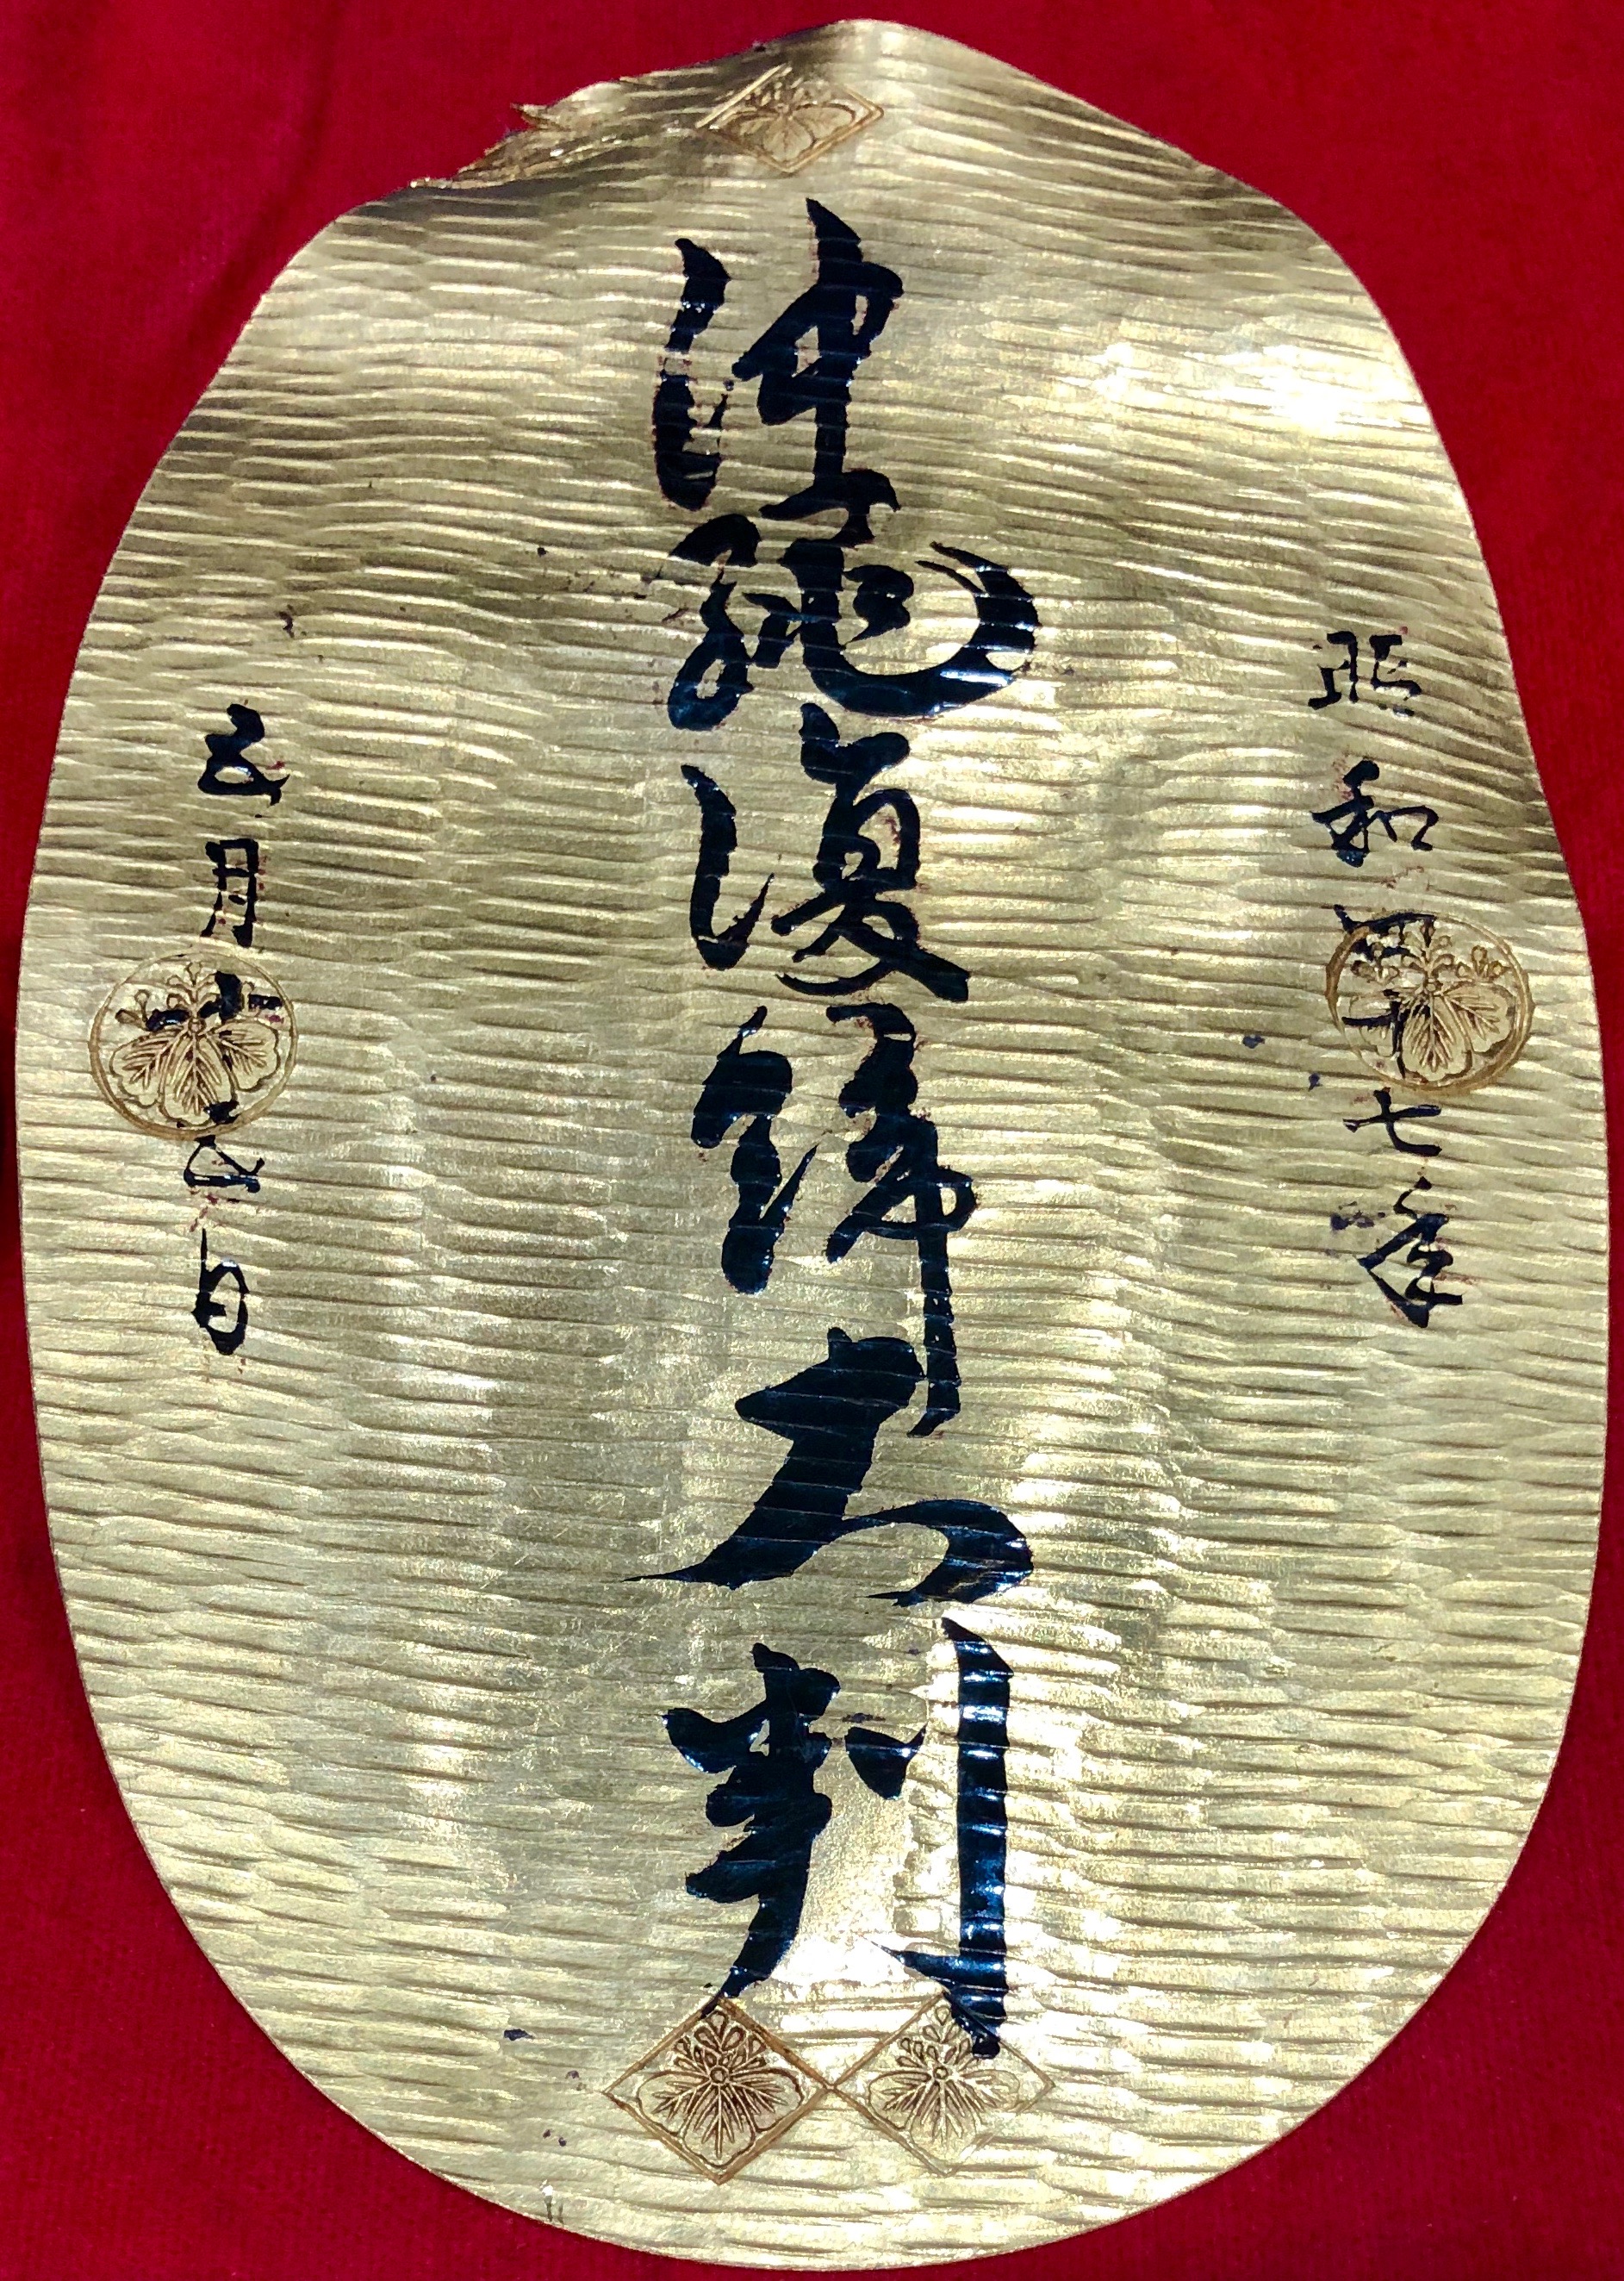 昭和四十七年
沖縄復帰大判
五月十五日